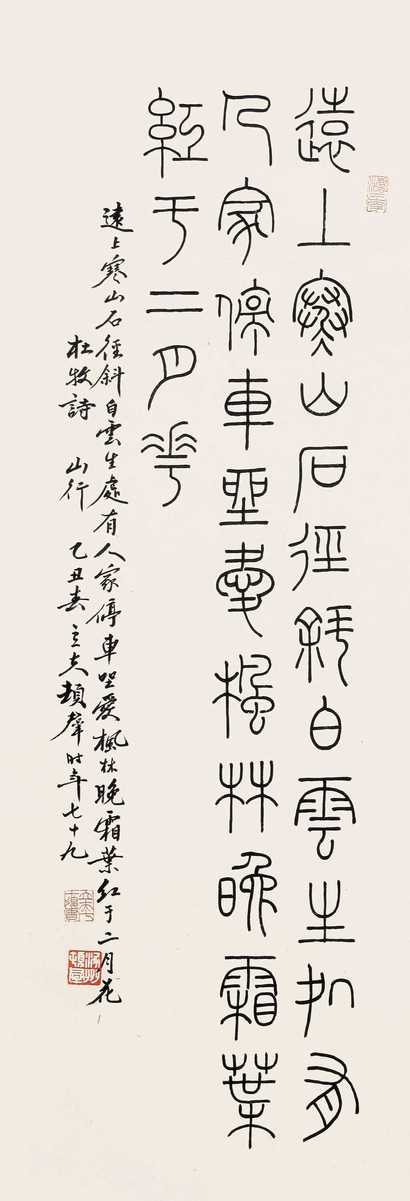 遠上寒山石徑斜白雲生処有
人家停車坐愛楓林晚霜葉
紅于二月花
遠上寒山石徑斜白雲生處有人家停車坐愛楓林晚霜葉红于二月花
杜牧詩 山行 乙丑春 立夫頓群时年七十九